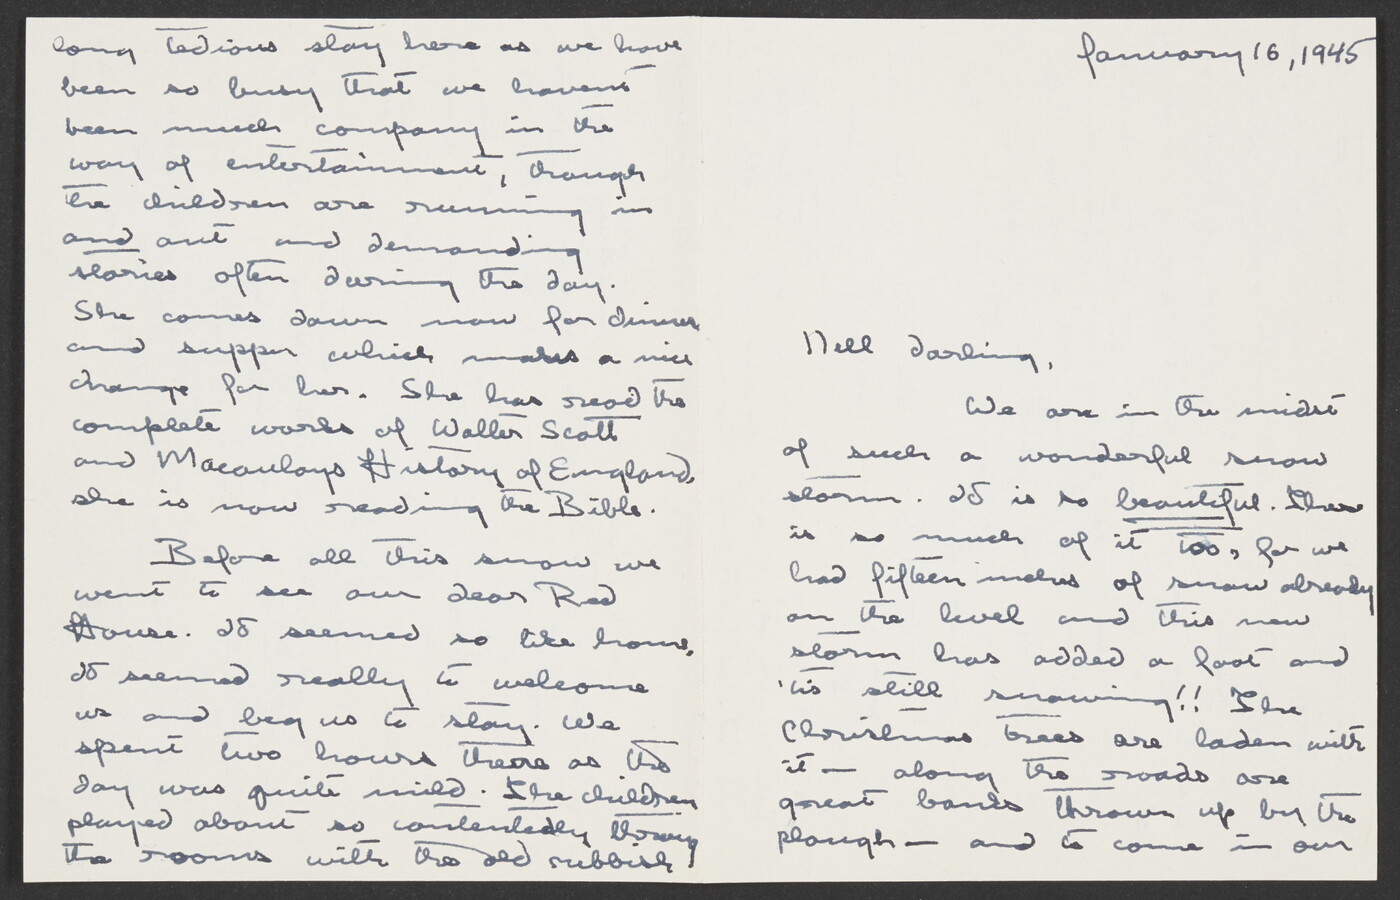 January 16, 1945
Nell darling,
We are in the midst
of such a wonderful snow
storm. It is so beautiful. There
is so much of it too, for we
had fifteen inches of snow already
on the level and this new
storm has added a foot and
'tis still snowing!! The
Christmas trees are laden with
it — along the roads are
great banks thrown up by the
plough — and to come in our
long tedious stay here as we have
been so busy that we havent
been much company in the
way of entertainment, though
the children are running in
and out and demanding
stories often during the day.
She comes down now for dinner
and supper which makes a nice
change for her. She has read the
complete works of Walter Scott
and Macaulays History of England,
she is now reading the Bible.
Before all this snow we
went to see our dear Red
House. It seemed so like home,
It seemed really to welcome
us and beg us to stay. We
spent two hours there as the
day was quite mild. The children
played about so contentedly throug
the rooms with the old rubbish